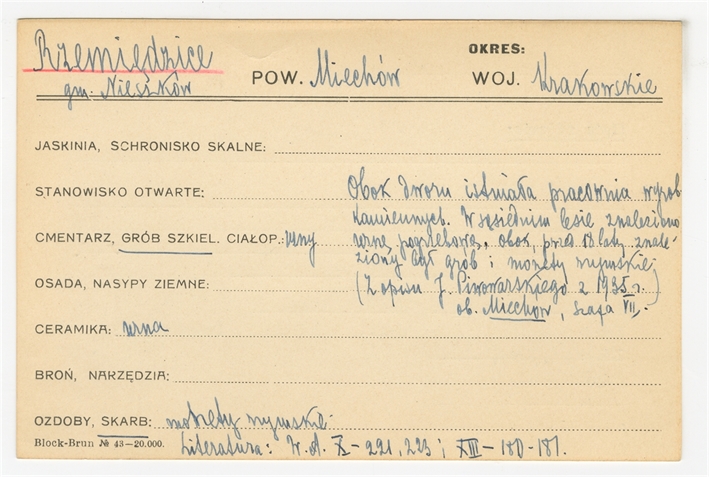 Rzemiędzice
OKRES:
gm. Nieszków POW. Miechów WOJ. Krakowskie
JASKINIA, SCHRONISKO SKALNE:
STANOWISKO OTWARTE: Obok dworu istniała pracownia wyrob
kamiennych. W sąsiednim lesie znaleziono
CMENTARZ, GRÓB SZKIEL. CIAŁOP.: urny
urnę pogrzebową, obok, przed laty znale-
ziony był grób i monety rzymskie
OSADA, NASYPY ZIEMNE:
(Z opisu J. Piwowarskiego z 1935 r.)
ob. Miechów, szafa VII.
CERAMIKA: urna
BROŃ, NARZĘDZIA:
OZDOBY, SKARB: monety rzymskie
Block-Brun № 43-20.000.
Literatura: W. A. X - 221, 223; XIII - 180-181.